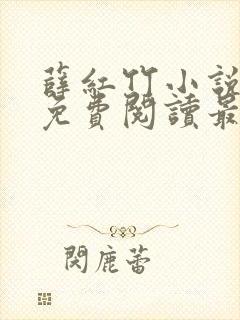 薛紅竹小說
免費閱讀最
閔鹿蕾